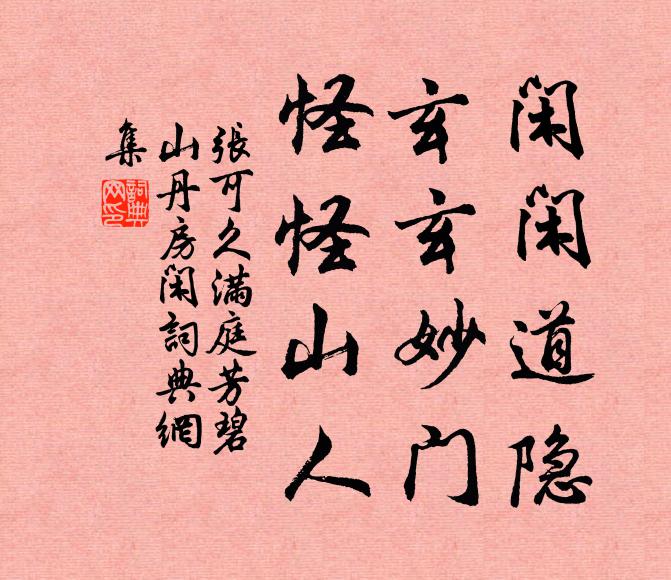 闲闲道隐
玄玄妙门
怪怪山人
張可久满庭芳碧
山丹房闲詞典網
集
詞典
网印